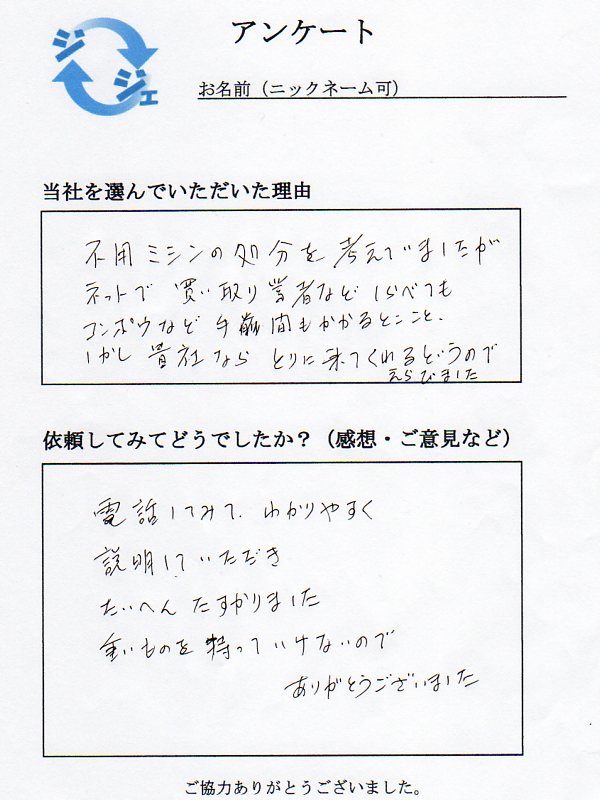 ジジェ
アンケート
お名前（ニックネーム可）
当社を選んでいただいた理由
不用ミシンの処分を考えていましたが
ネットで買い取り業者などしらべても
コンポウなど手間もかかるとこと、
しかし貴社ならとりに来てくれるというので
えらびました
依頼してみてどうでしたか？（感想・ご意見など）
電話してみて、わかりやすく
説明していただき
たいへんたすかりました
重いものを持っていけないので
ありがとうございました
ご協力ありがとうございました。